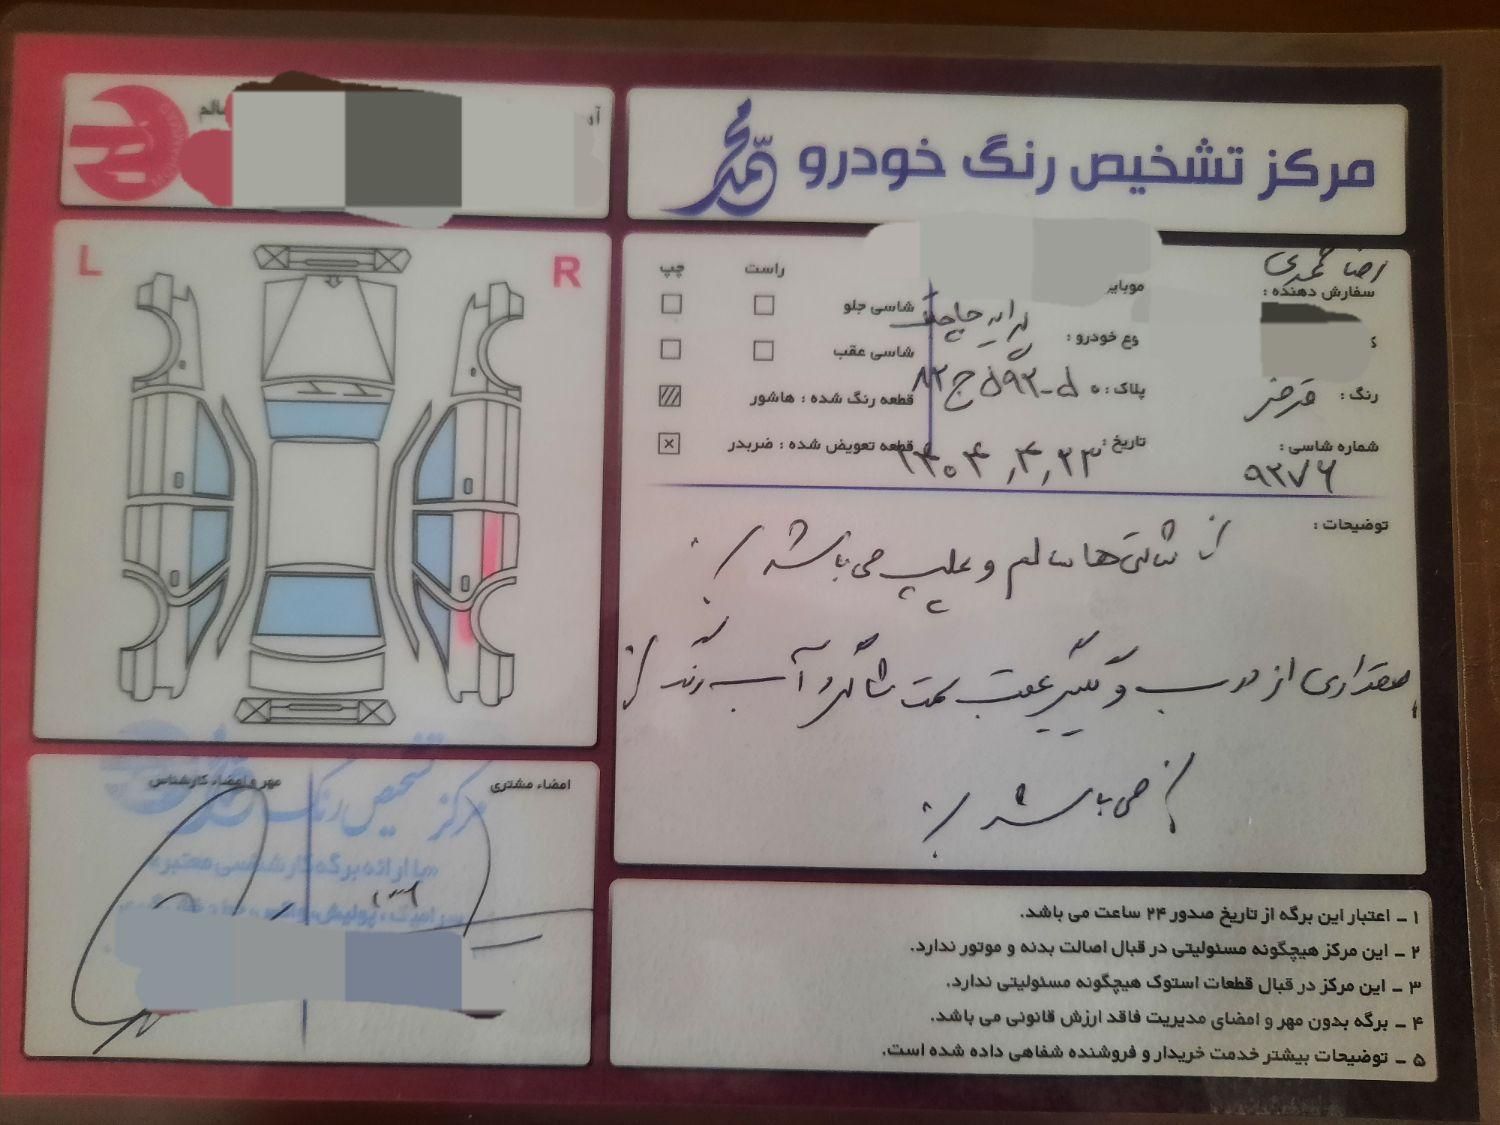 مرکز تشخیص رنگ خودرو
محمد
L
R
رضا محمدی
سفارش دهنده :
راست
چپ
شاسی جلو
شاسی عقب
قطعه رنگ شده : هاشور
قطعه تعویض شده : ضربدر
وع خودرو : پراید هاچبک
رنگ : قرمز
تاریخ : ۱۴۰۴,۳,۲۳
شماره شاسی :
۹۲۷۶
توضیحات :
شاسی‌ها سالم و پلمپ می باشد
مقداری از درب و گلگیر عقب سمت شاگرد آب رنگ
می باشد
امضاء مشتری
مهر و امضاء کارشناس
مرکز تشخیص رنگ
با ارائه برگه کارشناسی معتبر
۱ ـ اعتبار این برگه از تاریخ صدور ۲۴ ساعت می باشد.
۲ ـ این مرکز هیچگونه مسئولیتی در قبال اصالت بدنه و موتور ندارد.
۳ ـ این مرکز در قبال قطعات استوک هیچگونه مسئولیتی ندارد.
۴ ـ برگه بدون مهر و امضای مدیریت فاقد ارزش قانونی می باشد.
۵ ـ توضیحات بیشتر خدمت خریدار و فروشنده شفاهی داده شده است.